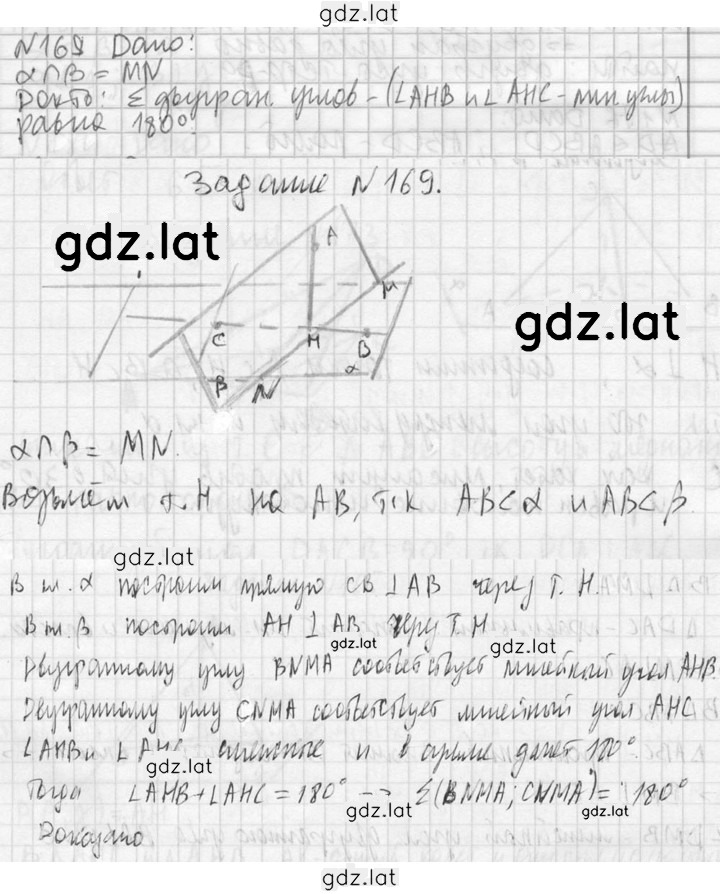 gdz.lat
N169 Дано:
α∩β = MN
Док-ть: Σ двугран. углов - (∠AHB и ∠AHC - лин. углы)
равна 180°.
Задание N169.
gdz.lat
A
M
gdz.lat
C
H
B
B
N
α
α∩β = MN.
Возьмём т. H на AB, т.к ABCα и ABCβ.
gdz.lat
В т. α построим прямую CB ⊥ AB через т. H.
В т. β построим AH ⊥ AB через т. H
gdz.lat gdz.lat
Двугранному углу BNMA соответствует линейный угол AHB.
Двугранному углу CNMA соответствует линейный угол AHC
∠AHB и ∠AHC смежные и в сумме дают 180°.
gdz.lat
Тогда ∠AHB+∠AHC = 180° --> Σ(BNMA; CNMA) = 180°
gdz.lat gdz.lat
Доказано
gdz.lat